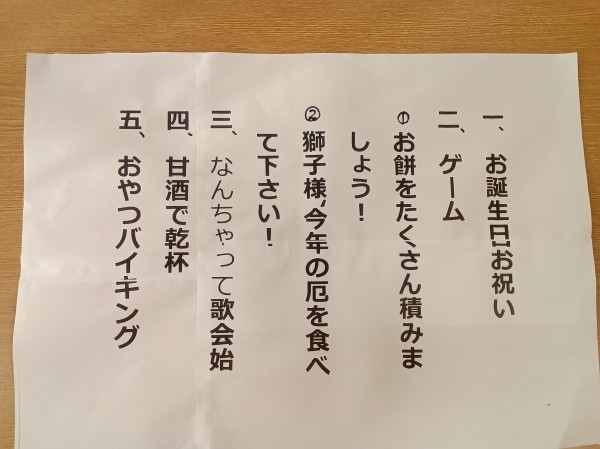 一、お誕生日お祝い
二、ゲーム
①お餅をたくさん積みま
しょう！
②獅子様、今年の厄を食べ
て下さい！
三、なんちゃって歌会始
四、甘酒で乾杯
五、おやつバイキング